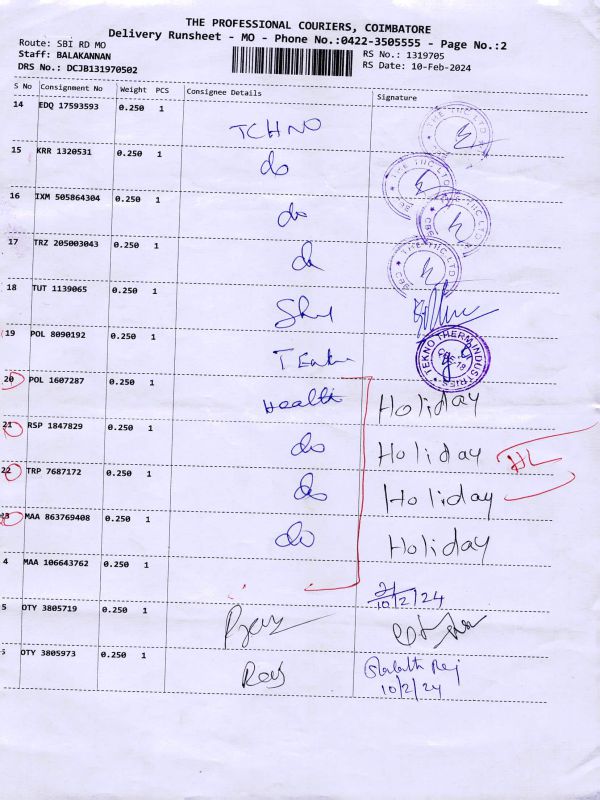 THE PROFESSIONAL COURIERS, COIMBATORE
Delivery Runsheet - MO - Phone No.:0422-3505555 - Page No.:2
Route: SBI RD MO
RS No.: 1319705
Staff: BALAKANNAN
RS Date: 10-Feb-2024
DRS No.: DCJB131970502
S No Consignment No Weight PCS Consignee Details Signature
14 EDQ 17593593 0.250 1 TCHNO
15 KRR 1320531 0.250 1 do
16 IXM 505864304 0.250 1 do
17 TRZ 205003043 0.250 1 do
18 TUT 1139065 0.250 1
19 POL 8090192 0.250 1 TEKNO THERM INDUSTRIES
20 POL 1607287 0.250 1 Health Holiday
21 RSP 1847829 0.250 1 do Holiday HL
22 TRP 7687172 0.250 1 do Holiday
23 MAA 863769408 0.250 1 do Holiday
4 MAA 106643762 0.250 1
10/2/24
5 OTY 3805719 0.250 1
OTY 3805973 0.250 1 Raj
10/2/24